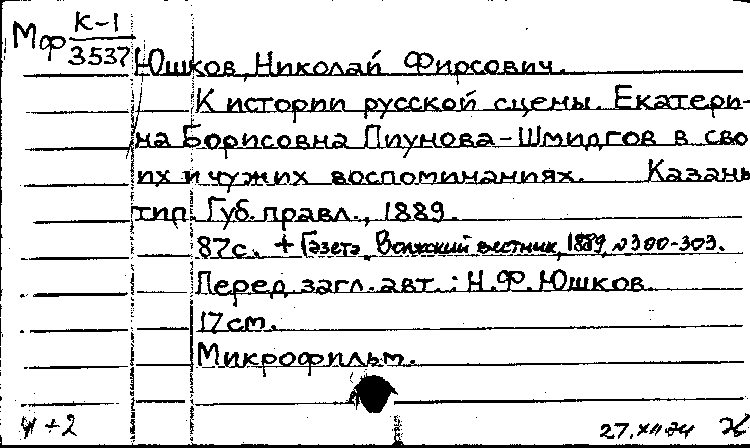 Мф К-1
3537
Юшков, Николай Фирсович.
К истории русской сцены. Екатери-
на Борисовна Пиунова-Шмидгов в сво
их и чужих воспоминаниях. Казань
тип. Губ. правл., 1889.
87с. + Газета Волжский вестник, 1889, №300-303.
Перед загл. авт.: Н.Ф. Юшков.
17 см.
Микрофильм.
4+2